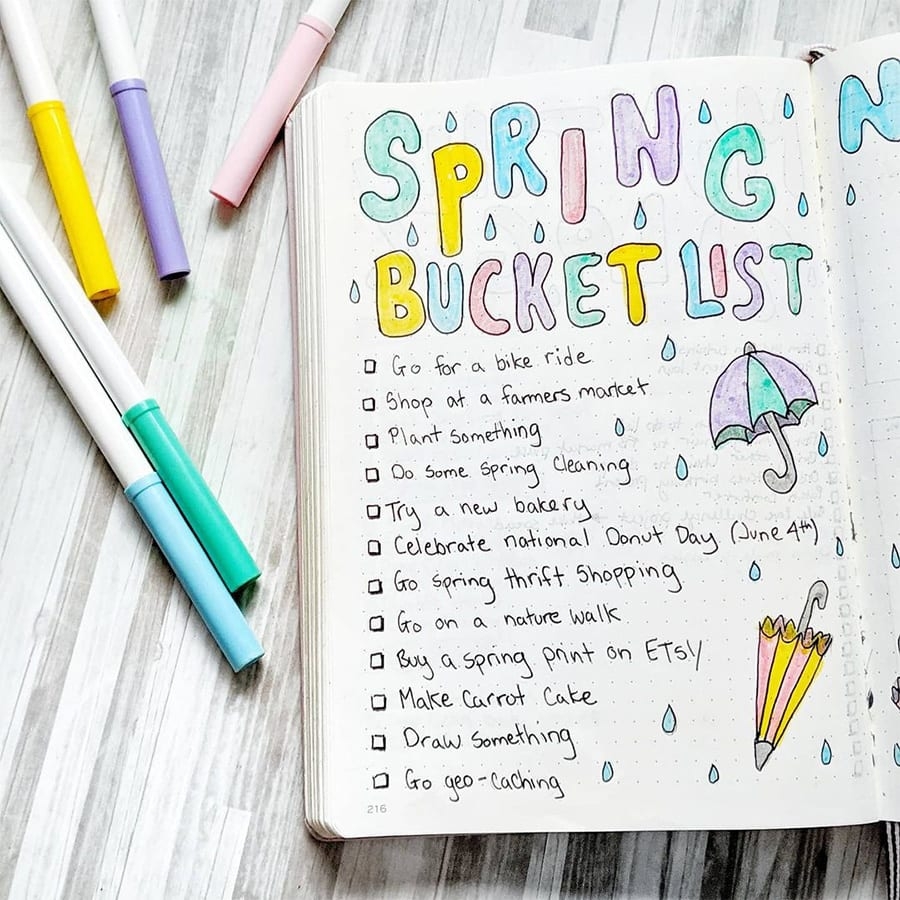 SPRING
BUCKET LIST
Go for a bike ride
Shop at a farmers market
Plant something
Do some spring cleaning
Try a new bakery
Celebrate national Donut Day (June 4th)
Go spring thrift shopping
Go on a nature walk
Buy a spring print on ETSY
Make carrot cake
Draw something
Go geo-caching
216
N